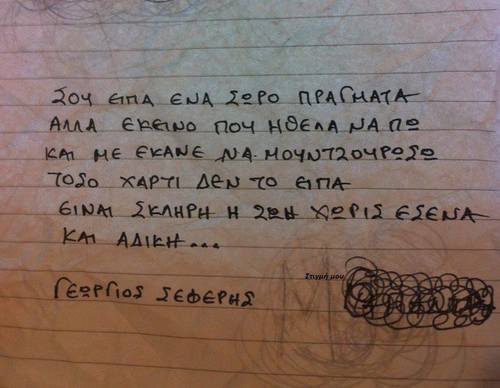 ΣΟΥ ΕΙΠΑ ΕΝΑ ΣΩΡΟ ΠΡΑΓΜΑΤΑ
ΑΛΛΑ ΕΚΕΙΝΟ ΠΟΥ ΗΘΕΛΑ ΝΑ ΠΩ
ΚΑΙ ΜΕ ΕΚΑΝΕ ΝΑ ΜΟΥΝΤΖΟΥΡΩΣΩ
ΤΟΣΟ ΧΑΡΤΙ ΔΕΝ ΤΟ ΕΙΠΑ
ΕΙΝΑΙ ΣΚΛΗΡΗ Η ΖΩΗ ΧΩΡΙΣ ΕΣΕΝΑ
ΚΑΙ ΑΔΙΚΗ...
Στιγμή μου
ΓΕΩΡΓΙΟΣ ΣΕΦΕΡΗΣ